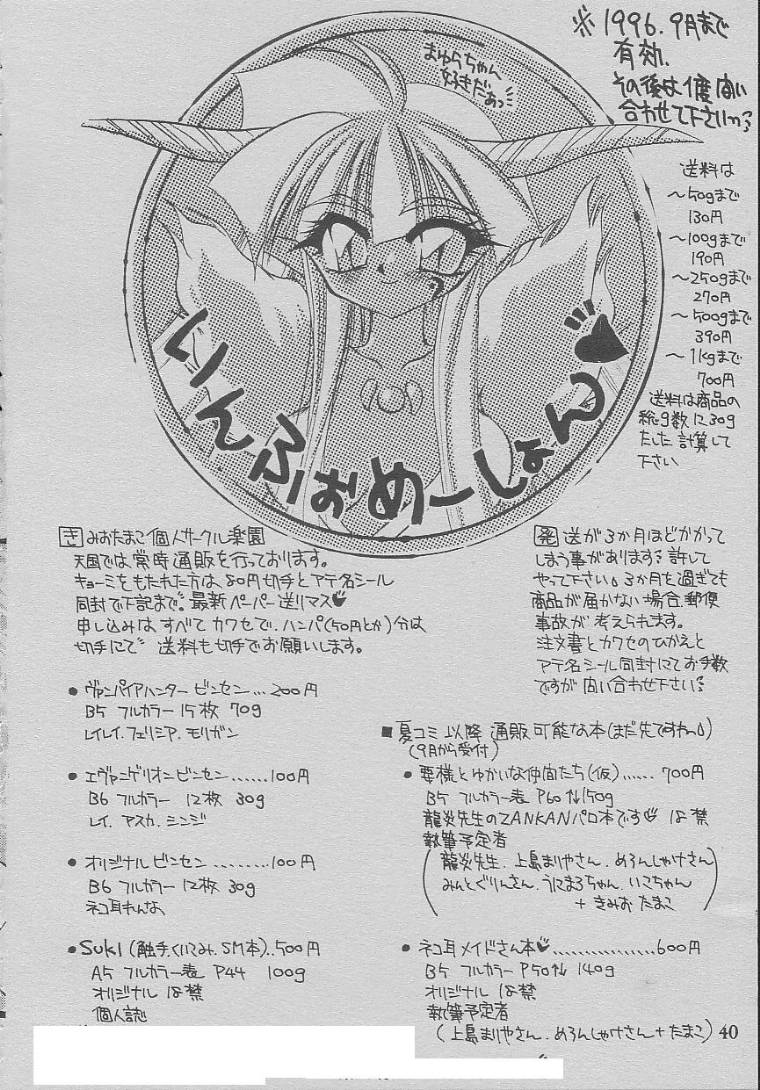 ※1996.9月まで
有効.
その後は1度問い
合わせて下さいっ
まゆらちゃん
好きだぁっ
送料は
〜50gまで
130円
〜100gまで
190円
〜250gまで
270円
〜500gまで
390円
〜1kgまで
700円
送料は商品の
総g数に30g
たした計算して
下さい
いんふぉめーしょん
きみおたまこ個人サークル楽園
天国では常時通販を行っております。
キョーミをもたれた方は80円切手とアテ名シール
同封で下記まで。最新ペーパー送リマス
申し込みは、すべてカワセで、ハンパ(50円とか)分は
切手にて 送料も切手でお願いします。
発送が3か月ほどかかって
しまう事があります 許して
やって下さい。3か月を過ぎても
商品が届かない場合、郵便
事故が考えられます。
注文書とカワセのひかえと
アテ名シール同封にてお手数
ですが問い合わせ下さい
●ヴァンパイアハンタービンセン…200円
B5 フルカラー 15枚 70g
レイレイ.フェリシア.モリガン
●エヴァンゲリオンビンセン……100円
B6 フルカラー 12枚 30g
レイ.アスカ.シンジ
●オリジナルビンセン………100円
B6 フルカラー 12枚 30g
ネコ耳れんな
●Suki(触手.くいこみ.SM本)..500円
A5 フルカラー表 P44 100g
オリジナル 18禁
個人誌
■夏コミ以降 通販可能な本(まだ先ですわっ)
(9月から受付)
●要様とゆかいな仲間たち(仮)……700円
B5 フルカラー表 P60↑↓150g
龍炎先生のZANKANパロ本です 18禁
執筆予定者
(龍炎先生.上島まりやさん.めろんしゃけさん
みんとぐりんさん.うにまろちゃん.いこちゃん
+きみおたまこ)
●ネコ耳メイドさん本………………600円
B5 フルカラー P50↑↓ 140g
オリジナル 18禁
執筆予定者
(上島まりやさん.めろんしゃけさん+たまこ)
40